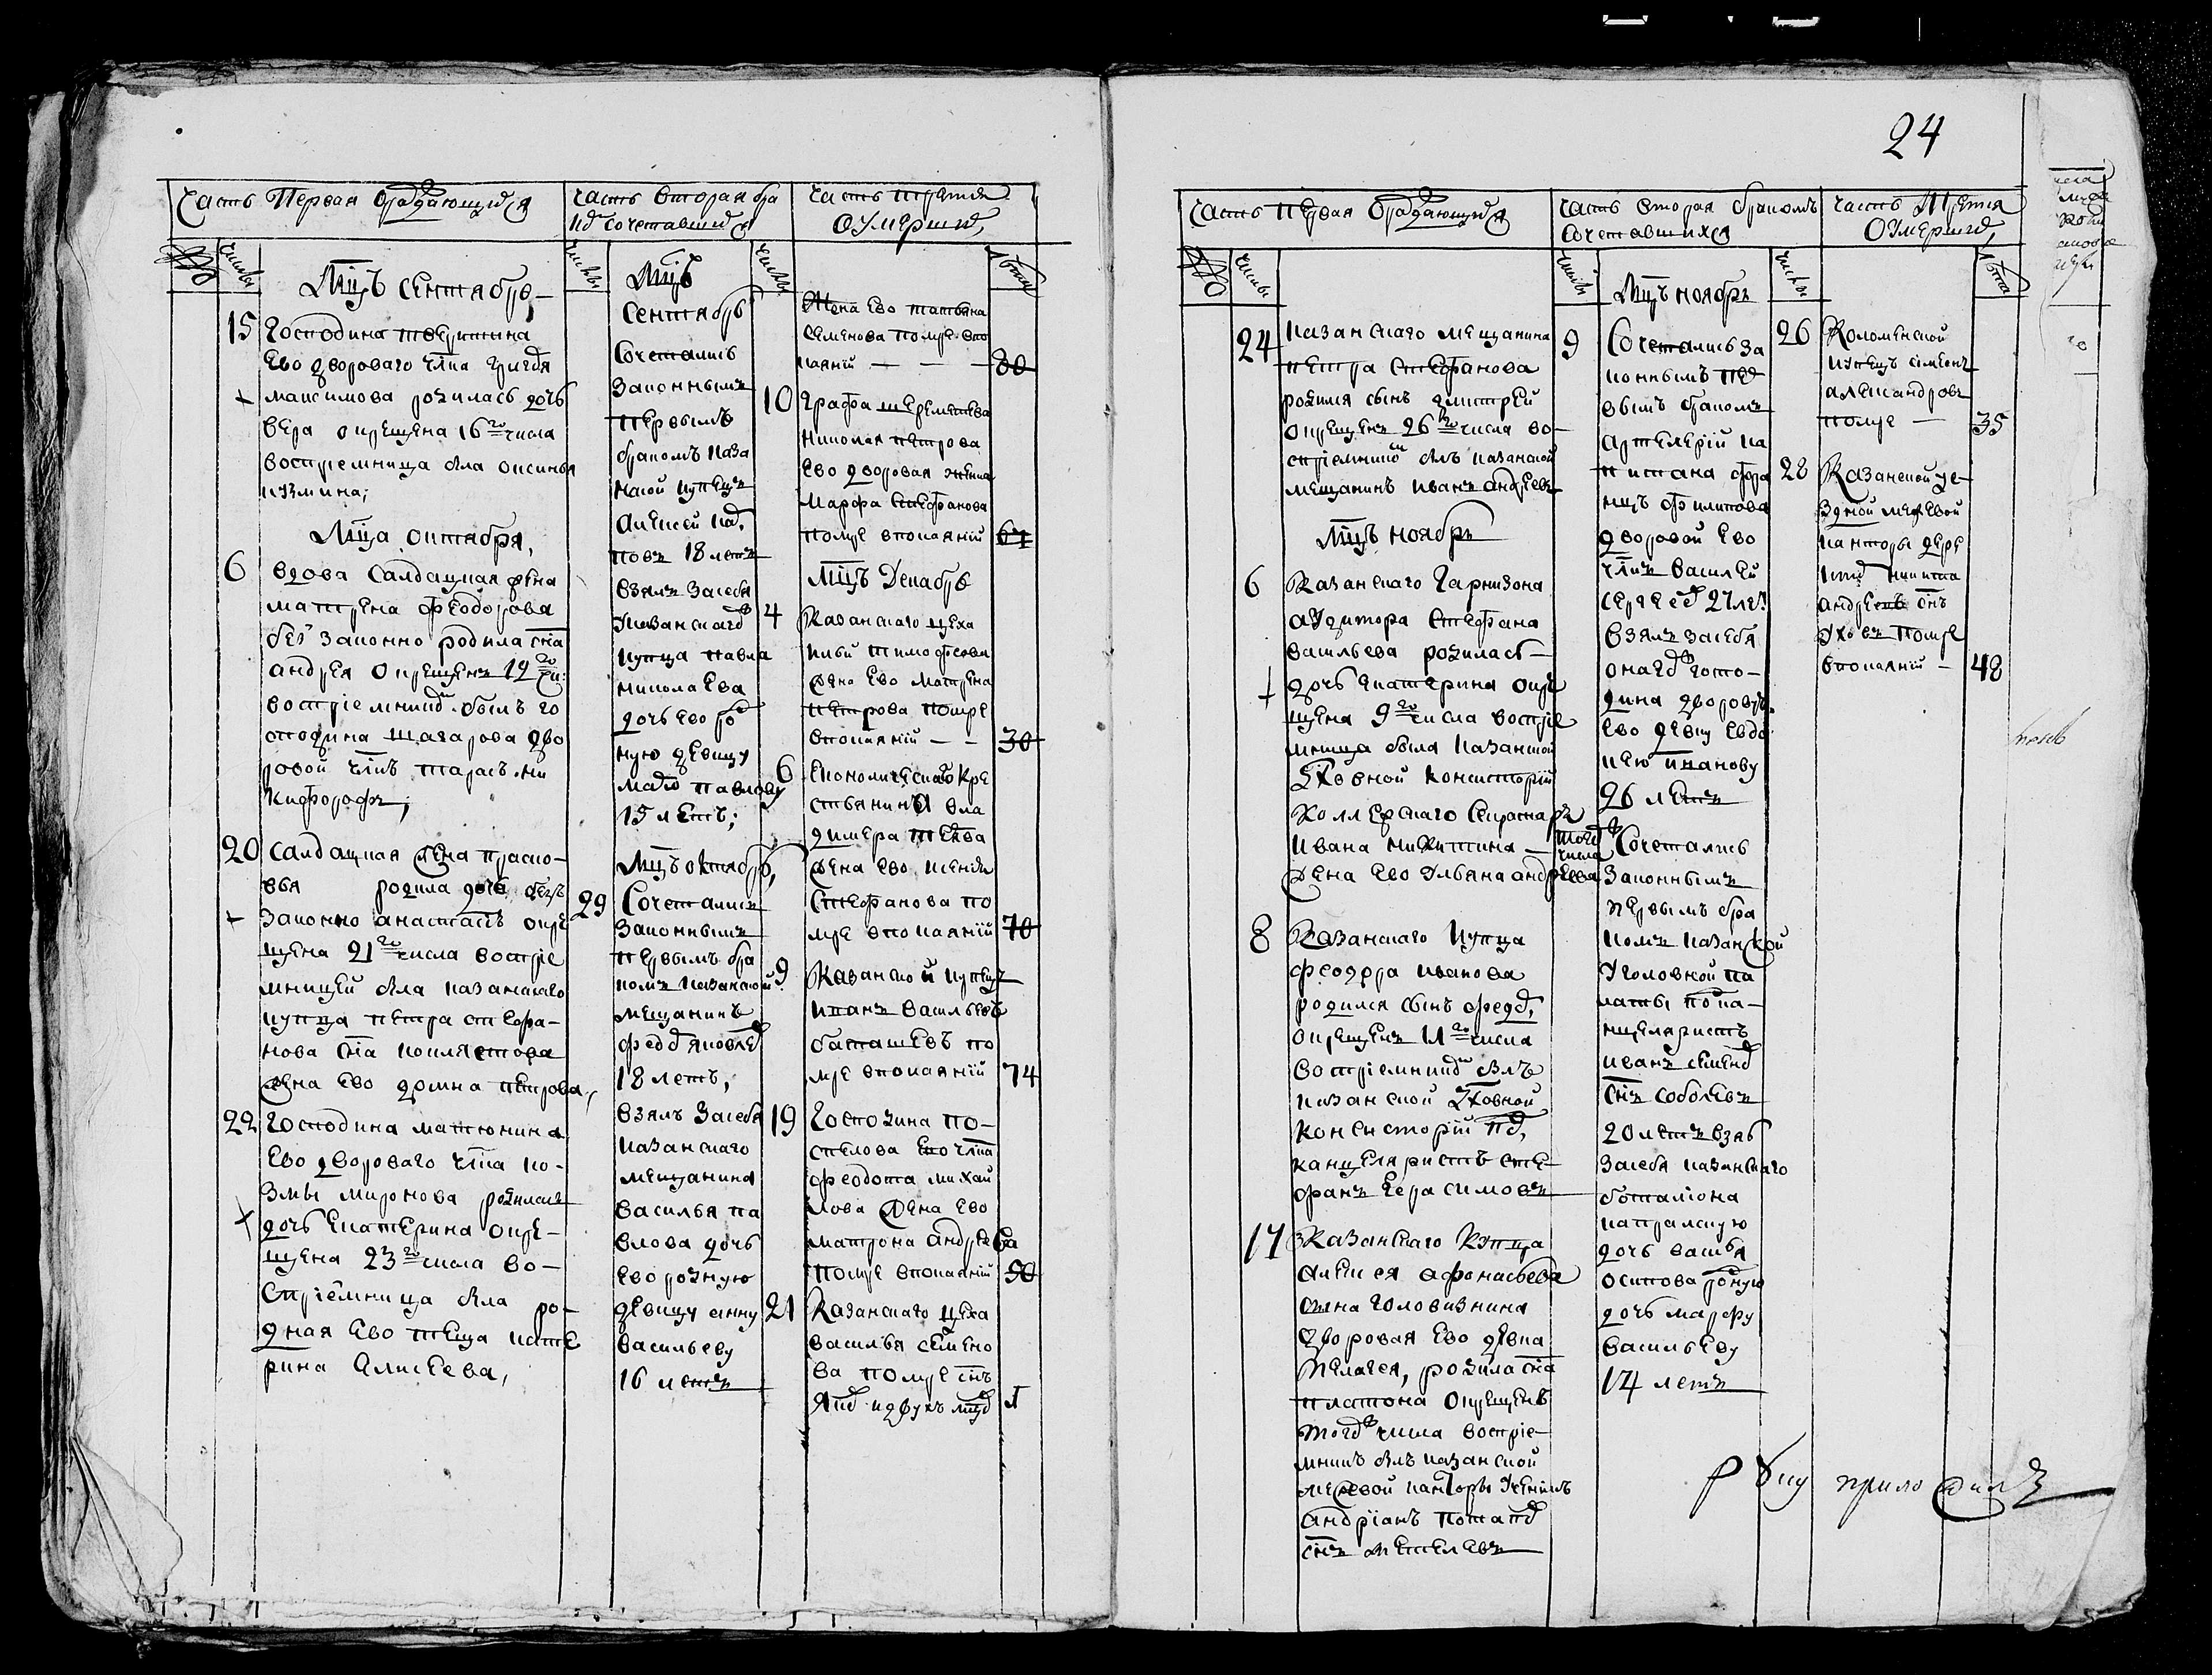 24
Часть Первая ораждающихся
числы
Мцъ Сентябрь
15 Господина
Ево двороваго члва
максимова родилась дочь
вера окрещена 16го числа
восприемница была Ксинья
кузмина;
Мца октября,
6 вдова Салдацкая жена
матрена феодорова
без законно родила сна
андрея окрещенъ
восприемникъ былъ го
сподина дво
ровой члвкъ тарасъ ни
кифоровъ;
20 Салдацкая жена праско
вья родила дочь безъ
законно анастасью окре
щена 21го числа воспрiе
мницей была казанскаго
купца петра стефа
нова сна
жена ево домна петрова,
22 Господина матюнина
Ево двороваго члва ко
змы миронова родилась
дочь Екатерина окре
щена 23го числа во
спрiемница была ро
дная ево теща кате
рина Алисеева,
часть вторая бра
комъ сочетавшихся
числы
Мцъ
Сентябрь
Сочетались
Законнымъ
первымъ
бракомъ каза
нской купецъ
Алексей
18 летъ
взялъ засебя
казанскаго
купца павла
николаева
дочь ево ро
ную девицу
павлову
15 летъ;
Мцъ октябрь,
29 Сочетались
Законнымъ
первымъ бра
комъ казанской
мещанинъ
федоръ яковлев
18 летъ,
взялъ засебя
казанскаго
мещанина
василья па
влова дочь
ево родную
девицу анну
васильеву
16 летъ
часть третия
О Умершихъ
числы
лета
Жена ево татьяна
семенова помре впо
каянiй — — 80
10 Графа шереметева
николая петрова
ево дворовая женка
Марфа Стефанова
помре впокаянiй 67
Мцъ Декабрь
4 Казанскаго цеха
тимофеева
жена ево матрена
петрова помре
впокаянiй — — 30
6 Економическаго кре
стьянина вла
димера
жена ево ксенья
Стефанова по
мре впокаянiй 70
9 Казанской купецъ
иванъ васильевъ
баташевъ по
мре впокаянiй 74
19 Господина по
спелова ево члва
феодота михай
лова жена ево
матрона андреева
помре впокаянiй 90
21 Казанскаго цеха
василья семено
ва помре снъ
Яковъ идвухъ мцовъ
Часть первая ораждающихся
числы
24 казанскаго мещанина
петра Стефанова
родился сынъ дмитрей
окрещенъ 26го числа во
спрiемникъ былъ казанской
мещанинъ иванъ андреевъ
Мцъ ноябрь
6 Казанскаго гарнизона
аудитора Стефана
васильева родилась
дочь Екатерина окре
щена 9го числа воспрiе
мница была казанской
духовной консисторiй
коллежскаго секретаря
ивана никитина
жена ево Ульяна андреева
8 Казанскаго купца
феодора иванова
родился сынъ федоръ
окрещенъ 11го числа
воспрiемникъ былъ
казанской духовной
консисторiй под
канцеляристъ сте
фанъ герасимовъ
17 Казанскаго купца
алексея афонасьева
сына головизнина
дворовая ево девка
пелагея, родила сна
платона окрещенъ
того числа воспрiе
мникъ былъ казанской
межевой канторы ученикъ
андрiанъ потапов
снъ метелевъ
часть вторая бракомъ
Сочетавшихся
числы
Мцъ ноябрь
9 Сочетались за
коннымъ пер
вымъ бракомъ
артелерiй ка
питана фра
нцъ филипова
дворовой ево
члвкъ василей
сергеев 27 лет
взялъ засебя
онаго госпо
дина дворову
ево девку евдо
кею иванову
26 летъ
того числа Сочетались
законнымъ
первымъ бра
комъ казанской
Уголовной па
латы подка
нцеляристъ
иванъ семенов
снъ соболевъ
20 летъ взяв
засебя казанскаго
баталiона
капралскую
дочь василья
осипова родную
дочь марфу
васильеву
17 летъ
часть Третия
О Умершихъ
числы
лета
26 Коломенской
купецъ симеонъ
александровъ
помре — 35
28 Казанской уе
здной межевой
канторы
никита
андреевъ снъ
помре
впокаянiй — 48
руку приложилъ